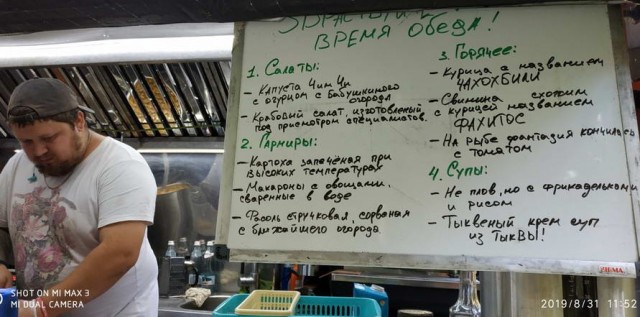 ЗДРАСТВУЙТЕ!
ВРЕМЯ ОБЕДА!
1. Салаты:
- Капуста Чим Чи
с огурцом с Бабушкиного
огорода
- Крабовый салат, изготовленый
под присмотром специалистов.
2. Гарниры:
- Картоха запечёная при
высоких температурах
- Макароны с овощами,
сваренные в воде
- Фасоль стручковая, сорваная
с ближайшего огорода
3. Горячее:
- Курица с названием
ЧАХОХБИЛИ
- Свинина схотим
с курицей названием
ФАХИТОС
- На рыбе фантазия кончилась
с томатом
4. Супы:
- Не плов, но с фрикадельками
и рисом
- Тыквеный крем суп
из ТЫКВЫ!
SHOT ON MI MAX 3
MI DUAL CAMERA
2019/8/31 11:52